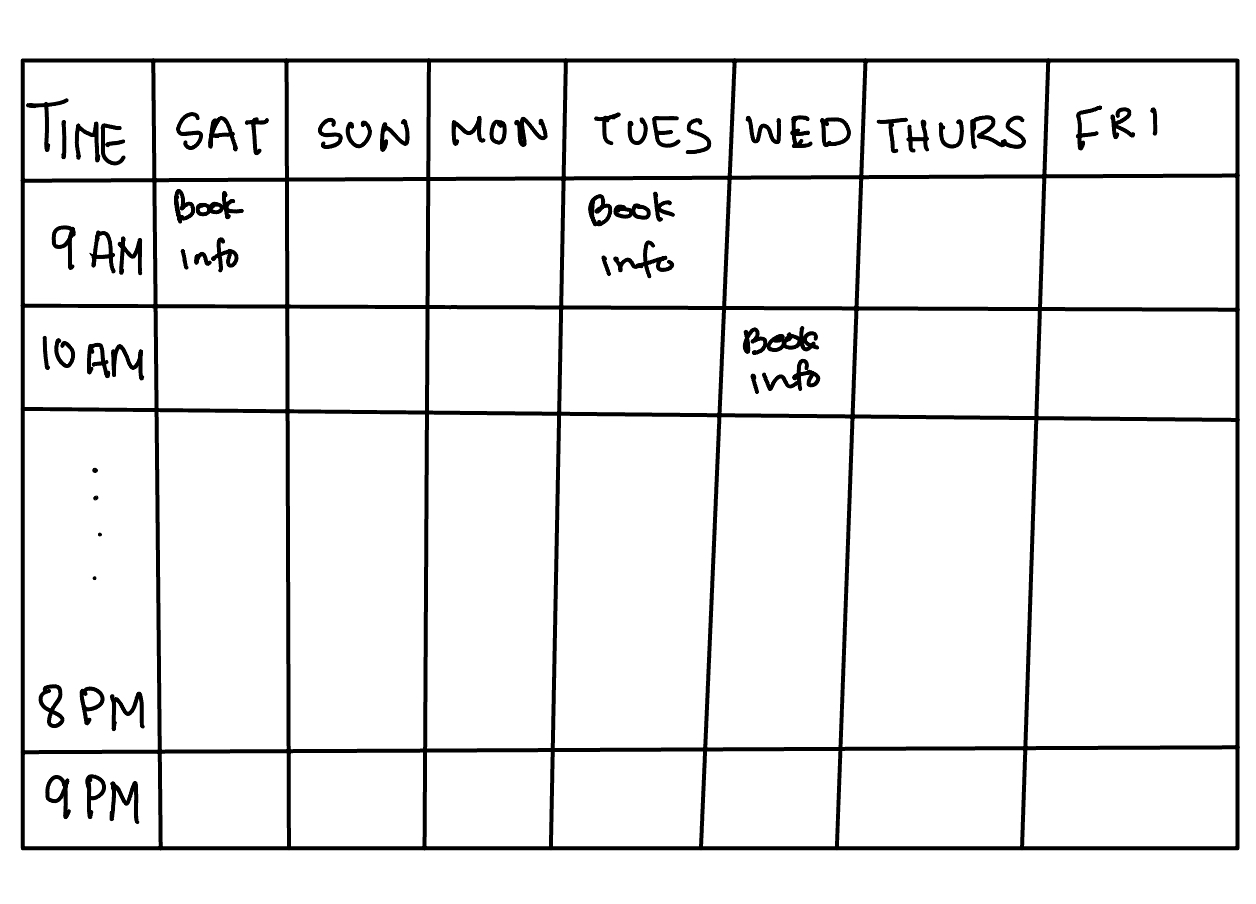 TIME SAT SUN MON TUES WED THURS FRI
9 AM Book info Book info
10 AM Book info
8 PM
9 PM